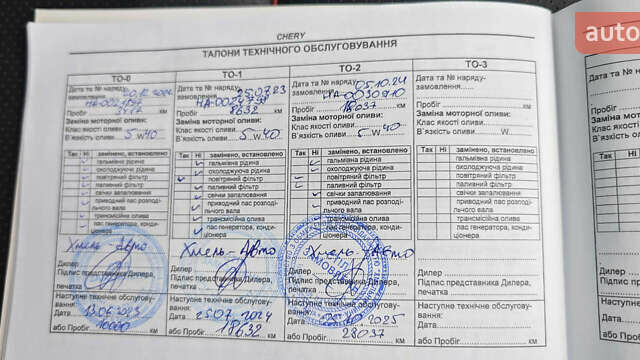 CHERY
auto
ТАЛОНИ ТЕХНІЧНОГО ОБСЛУГОВУВАННЯ
ТО-0
Дата та № наряду-замовлення
Пробіг км
Заміна моторної оливи:
Клас якості оливи
В'язкість оливи 5 W 40
Так Ні замінено, встановлено
гальмівна рідина
охолоджуюча рідина
повітряний фільтр
паливний фільтр
свічки запалювання
привідний пас розподільного вала
трансмісійна олива
пас генератора, кондиціонера
Хмель-Авто
Дилер
Підпис представника Дилера, печатка
Наступне технічне обслуговування:
Дата 13.06.2023
або Пробіг 10000 км
ТО-1
Дата та № наряду-замовлення 25.07.23
Пробіг 8632 км
Заміна моторної оливи:
Клас якості оливи
В'язкість оливи 5 W 40
Так Ні замінено, встановлено
гальмівна рідина
охолоджуюча рідина
повітряний фільтр
паливний фільтр
свічки запалювання
привідний пас розподільного вала
трансмісійна олива
пас генератора, кондиціонера
Хмель-Авто
Дилер
Підпис представника Дилера, печатка
Наступне технічне обслуговування:
Дата 25.07.2024
або Пробіг 18632 км
ТО-2
Дата та № наряду-замовлення 05.10.24
НА-0030910
Пробіг 18037 км
Заміна моторної оливи:
Клас якості оливи
В'язкість оливи 5 W 40
Так Ні замінено, встановлено
гальмівна рідина
охолоджуюча рідина
повітряний фільтр
паливний фільтр
свічки запалювання
привідний пас розподільного вала
трансмісійна олива
пас генератора, кондиціонера
Хмель-Авто
Дилер
Підпис представника Дилера, печатка
Наступне технічне обслуговування:
Дата 2025
або Пробіг 28037 км
ТО-3
Дата та № наряду-замовлення
Пробіг км
Заміна моторної оливи:
Клас якості оливи
В'язкість оливи W
Так Ні замінено, встановлено
гальмівна рідина
охолоджуюча рідина
повітряний фільтр
паливний фільтр
свічки запалювання
привідний пас розподільного вала
трансмісійна олива
пас генератора, кондиціонера
Дилер
Підпис представника Дилера, печатка
Наступне технічне обслуговування:
Дата
або Пробіг км